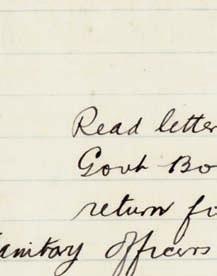 Read letter
Govt Bo
return fo
anitary officers